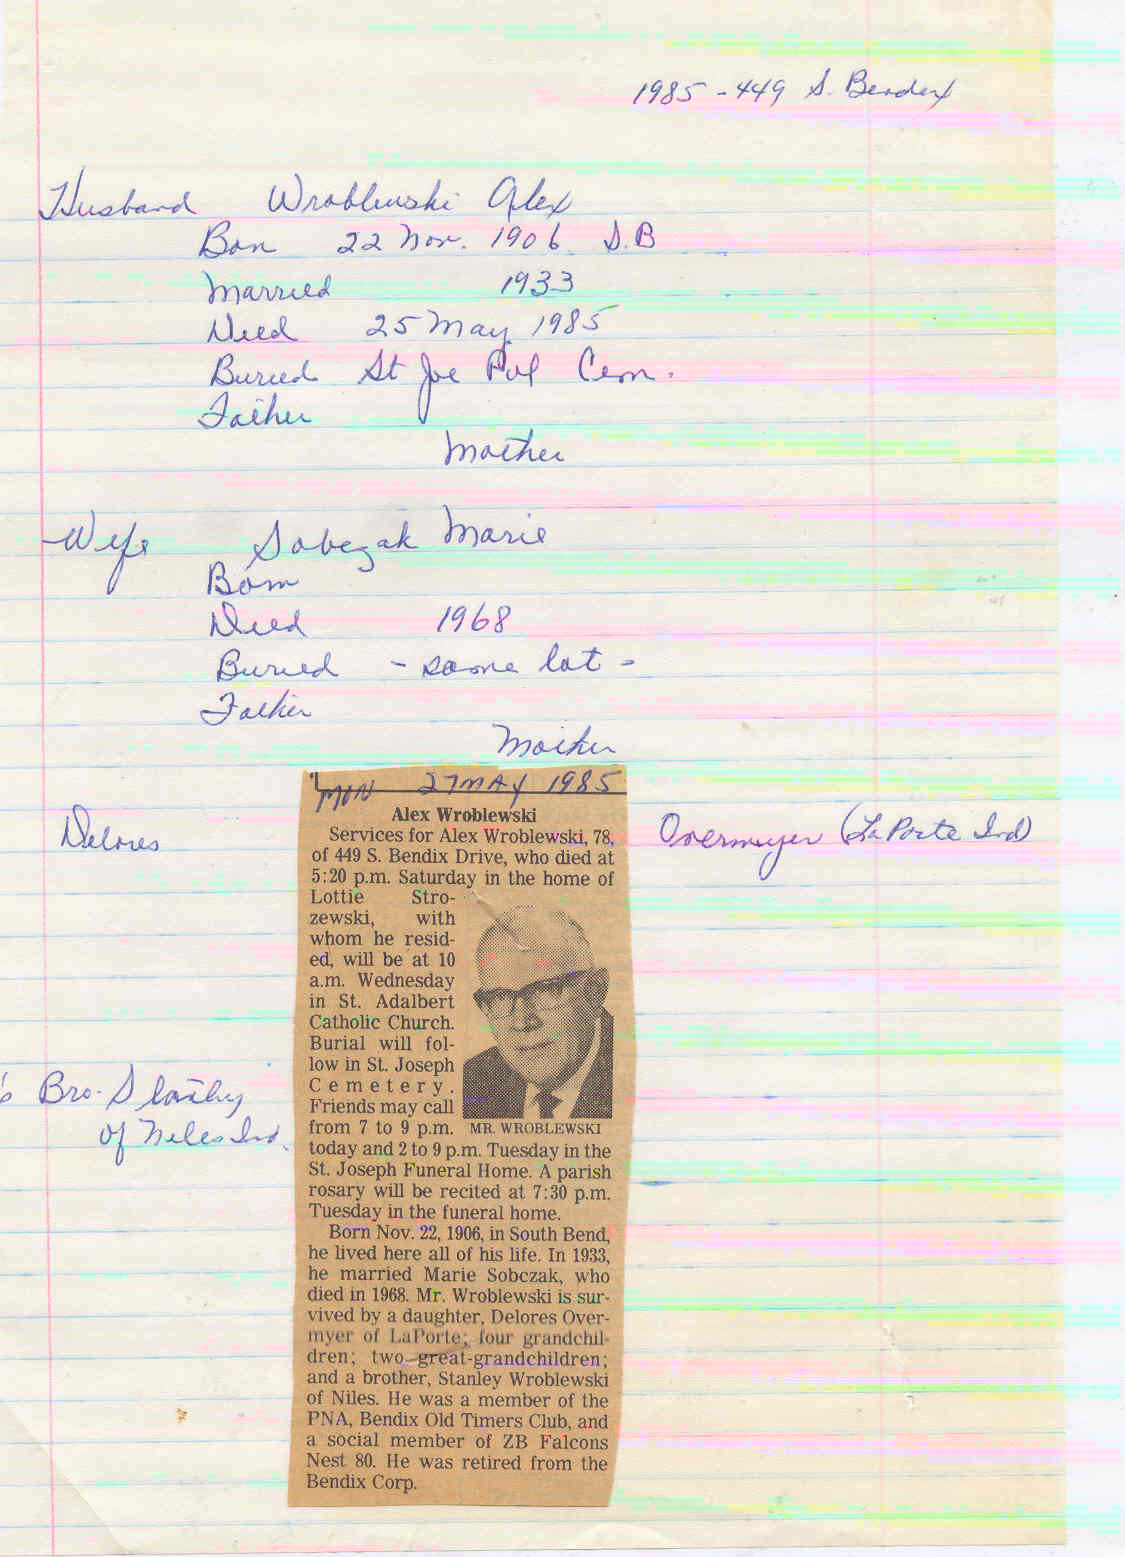 1985 - 449 S. Bendix
Husband Wroblewski Alex
Born 22 Nov. 1906 S.B
Married 1933
Died 25 May 1985
Buried St Joe Pol Cem.
Father
Mother
Wife Sobczak Marie
Born
Died 1968
Buried - same lot -
Father
Mother
MON 27 MAY 1985
Delores Overmyer (LaPorte Ind)
Alex Wroblewski
Services for Alex Wroblewski, 78,
of 449 S. Bendix Drive, who died at
5:20 p.m. Saturday in the home of
Lottie Stro-
zewski, with
whom he resid-
ed, will be at 10
a.m. Wednesday
in St. Adalbert
Catholic Church.
Burial will fol-
low in St. Joseph
Cemetery.
Friends may call
from 7 to 9 p.m.
MR. WROBLEWSKI
today and 2 to 9 p.m. Tuesday in the
St. Joseph Funeral Home. A parish
rosary will be recited at 7:30 p.m.
Tuesday in the funeral home.
Born Nov. 22, 1906, in South Bend,
he lived here all of his life. In 1933,
he married Marie Sobczak, who
died in 1968. Mr. Wroblewski is sur-
vived by a daughter, Delores Over-
myer of LaPorte; four grandchil-
dren; two great-grandchildren;
and a brother, Stanley Wroblewski
of Niles. He was a member of the
PNA, Bendix Old Timers Club, and
a social member of ZB Falcons
Nest 80. He was retired from the
Bendix Corp.
Bro. Stanley
of Niles Ind.